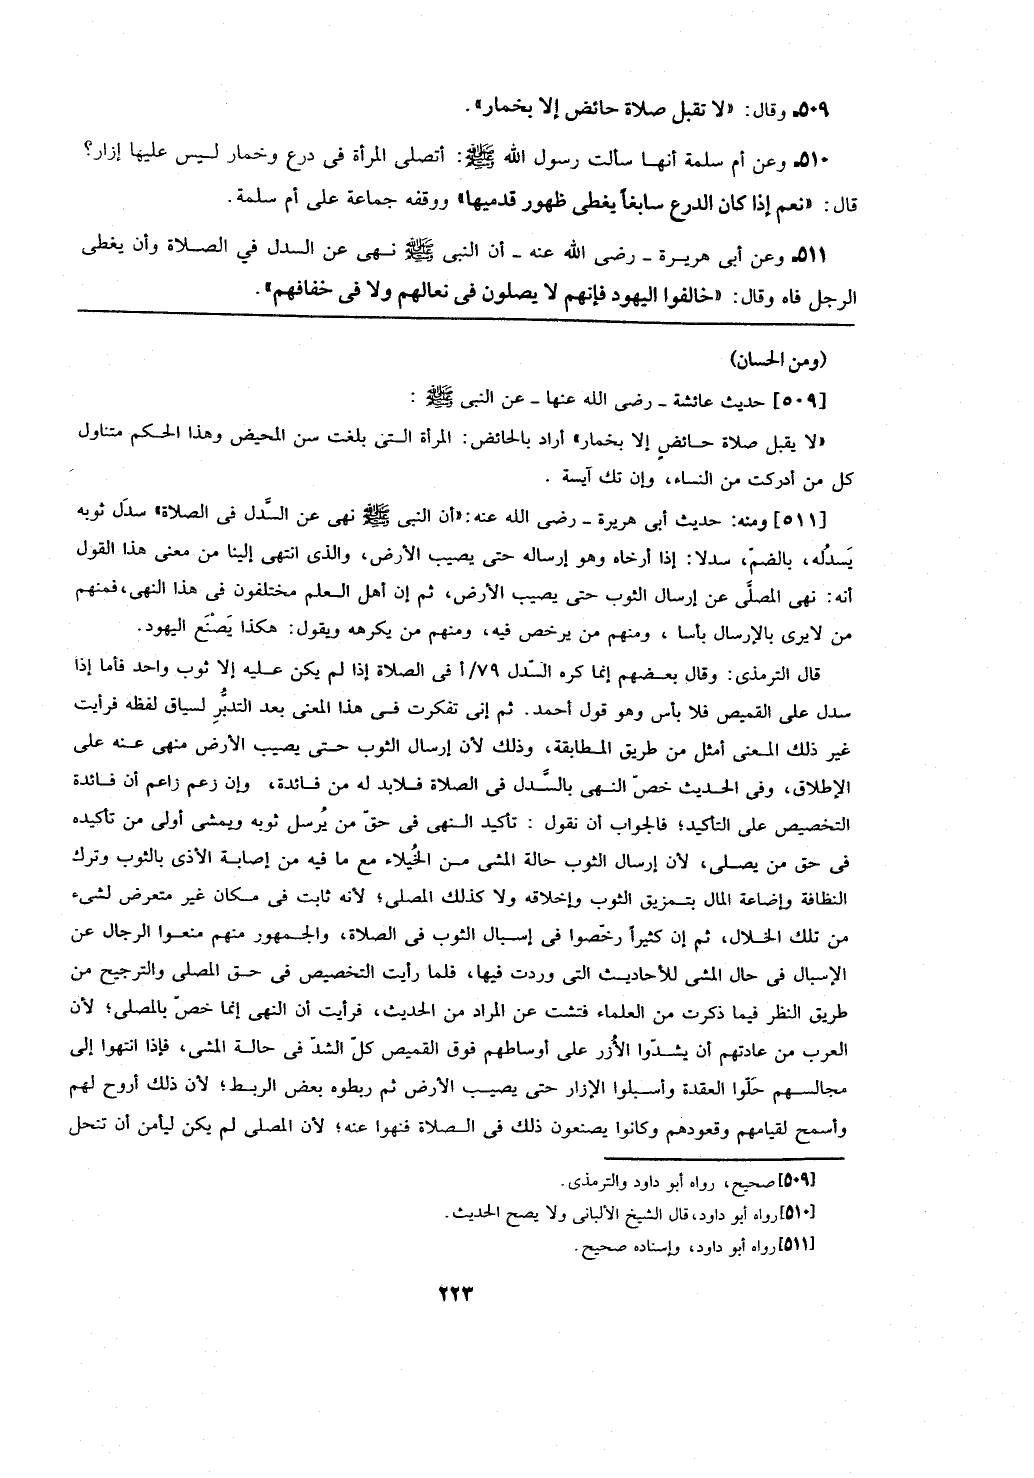 ٥٠٩ـ وقال: «لا تقبل صلاة حائض إلا بخمار».
٥١٠ـ وعن أم سلمة أنهـا سألت رسول الله ﷺ: أتصلى المرأة فى درع وخمار لـيس عليها إزار؟
قال: «نعم إذا كان الدرع سابغاً يغطى ظهور قدميها» ووقفه جماعة على أم سلمة.
٥١١ـ وعن أبى هريـرة ـ رضى الله عنه ـ أن النبى ﷺ نـهى عن السدل في الصـلاة وأن يغطى
الرجل فاه وقال: «خالفوا اليهود فإنهم لا يصلون فى نعالهم ولا فى خفافهم».
(ومن الحسان)
[٥٠٩] حديث عائشة ـ رضى الله عنها ـ عن النبى ﷺ :
«لا يقبل صلاة حـائضٍ إلا بخمار» أراد بالحائض: المرأة الـتى بلغت سن المحيض وهذا الحكم متناول
كل من أدركت من النساء، وإن تك آيسة .
[٥١١] ومنه: حديث أبى هريرة ـ رضى الله عنه:«أن النبى ﷺ نهى عن السَّدل فى الصلاة» سدَل ثوبه
يَسدُله، بالضمّ، سدلا: إذا أرخاه وهو إرساله حتى يصيب الأرض، والذى انتهى إلينا من معنى هذا القول
أنه: نهى المصلَّى عن إرسال الثوب حتى يصيب الأرض، ثم إن أهل الـعلم مختلفون فى هذا النهى،فمنهم
من لايرى بالإرسال بأسا ، ومنهم من يرخص فيه، ومنهم من يكرهه ويقول: هكذا يَصْنَع اليهود.
قال الترمذى: وقال بعـضهم إنما كره السّدل ٧٩/أ فى الصلاة إذا لم يكن عـليه إلا ثوب واحد فأما إذا
سدل على القميص فلا بأس وهو قول أحمد. ثم إنى تفكرت فـى هذا المعنى بعد التدبُّرِ لسياق لفظه فرأيت
غير ذلك المـعنى أمثل من طريق المـطابقة، وذلك لأن إرسال الثوب حـتى يصيب الأرض منهى عـنه على
الإطلاق، وفى الحـديث خصّ النـهى بالسَّدل فى الصلاة فـلابد له من فـائدة، وإن زعم زاعم أن فـائدة
التخصيص على التأكيد؛ فالجواب أن نقول : تأكيد النـهى فى حقّ من يُرسل ثوبه ويمشى أولى من تأكيده
فى حق من يصـلى، لأن إرسال الثوب حالة المشى مـن الخُيلاء مع ما فيه من إصابـة الأذى بالثوب وترك
النظافة وإضاعة المال بتـمزيق الثوب وإخلاقه ولا كذلك المصلى؛ لأنه ثابت فى مـكان غير متعرض لشىء
من تلك الخـلال، ثم إن كثيراً رخّصوا فى إسـبال الثوب فى الصلاة، والجـمهور منهم منعـوا الرجال عن
الإسبال فى حال المشى للأحاديـث التى وردت فيها، فلما رأيت التخصيص فى حـق المصلى والترجيح من
طريق النظر فيما ذكرت من العلماء فتشت عن المراد من الحديث، فرأيت أن النهى إنما خصّ بالمصلى؛ لأن
العرب من عادتهم أن يشـدّوا الأُزر على أوساطهم فوق القميص كلّ الشدّ فى حالـة المشى، فإذا انتهوا إلى
مجالسـهم حَلّوا العقدة وأسـبلوا الإزار حتى يصيـب الأرض ثم ربطوه بعض الربط؛ لأن ذلك أروح لهم
وأسمح لقيامهم وقعودهم وكانوا يصنعون ذلك فى الـصلاة فنهوا عنه؛ لأن المصلى لم يكن ليأمن أن تنحل
[٥٠٩]صحيح، رواه أبو داود والترمذى.
[٥١٠]رواه أبو داود،قال الشيخ الألبانى ولا يصح الحديث.
[٥١١]رواه أبو داود، وإسناده صحيح.
٢٢٣